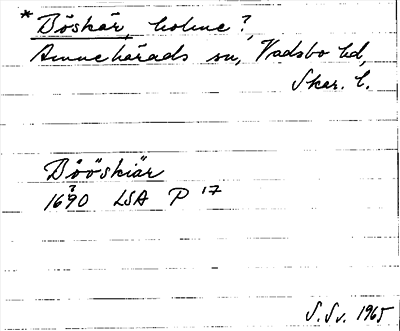 * Böskär, holme?,
Amnehärads sn, Vadsbo hd,
Skar. l.
Bööskiär
16?90 LSA P 17
S. Sv. 1965